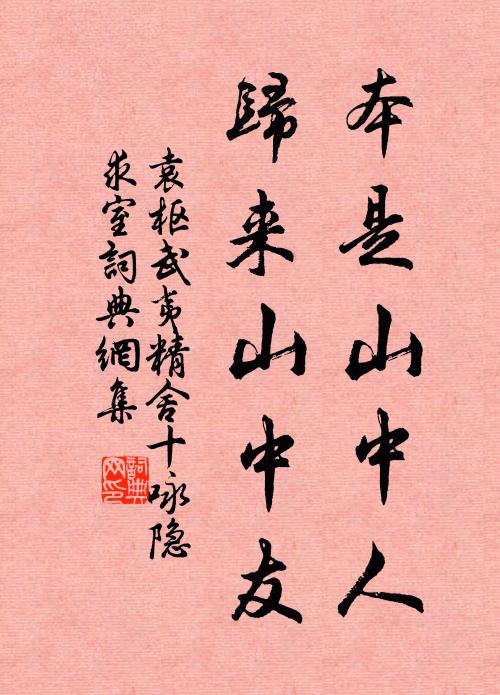 本是山中人
歸来山中友
袁枢武夷精舍十咏隐
求室詞典網集
詞典網印